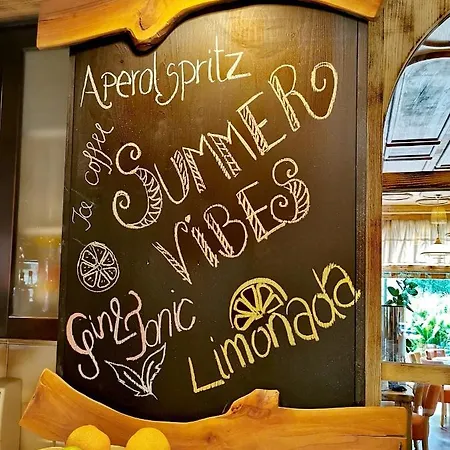 Aperol spritz
Ice Coffee
SUMMER
ViBES
Gin & Tonic
Limonada